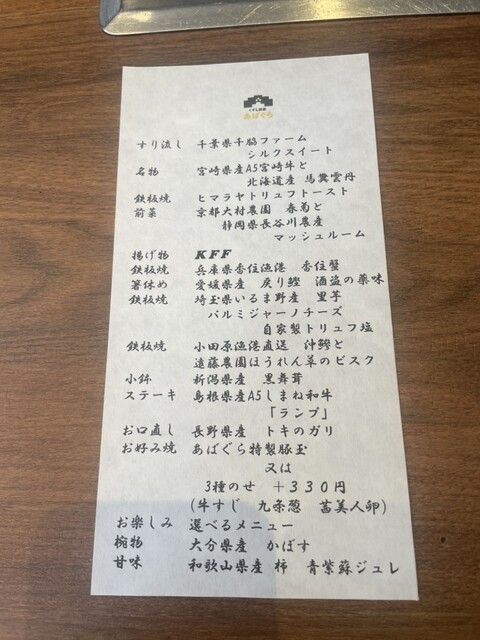 くずし割烹
あばぐら
すり流し 千葉県千脇ファーム
シルクスイート
名物 宮崎県産A5宮崎牛と
北海道産 馬糞雲丹
鉄板焼 ヒマラヤトリュフトースト
前菜 京都大村農園 春菊と
静岡県長谷川農産
マッシュルーム
揚げ物 KFF
鉄板焼 兵庫県香住漁港 香住蟹
箸休め 愛媛県産 戻り鰹 酒盗の薬味
鉄板焼 埼玉県いるま野産 里芋
パルミジャーノチーズ
自家製トリュフ塩
鉄板焼 小田原漁港直送 沖鰺と
遠藤農園ほうれん草のビスク
小鉢 新潟県産 黒舞茸
ステーキ 島根県産A5しまね和牛
「ランプ」
お口直し 長野県産 トキのガリ
お好み焼 あばぐら特製豚玉
又は
3種のせ +330円
(牛すじ 九条葱 茜美人卵)
お楽しみ 選べるメニュー
椀物 大分県産 かぼす
甘味 和歌山県産 柿 青紫蘇ジュレ